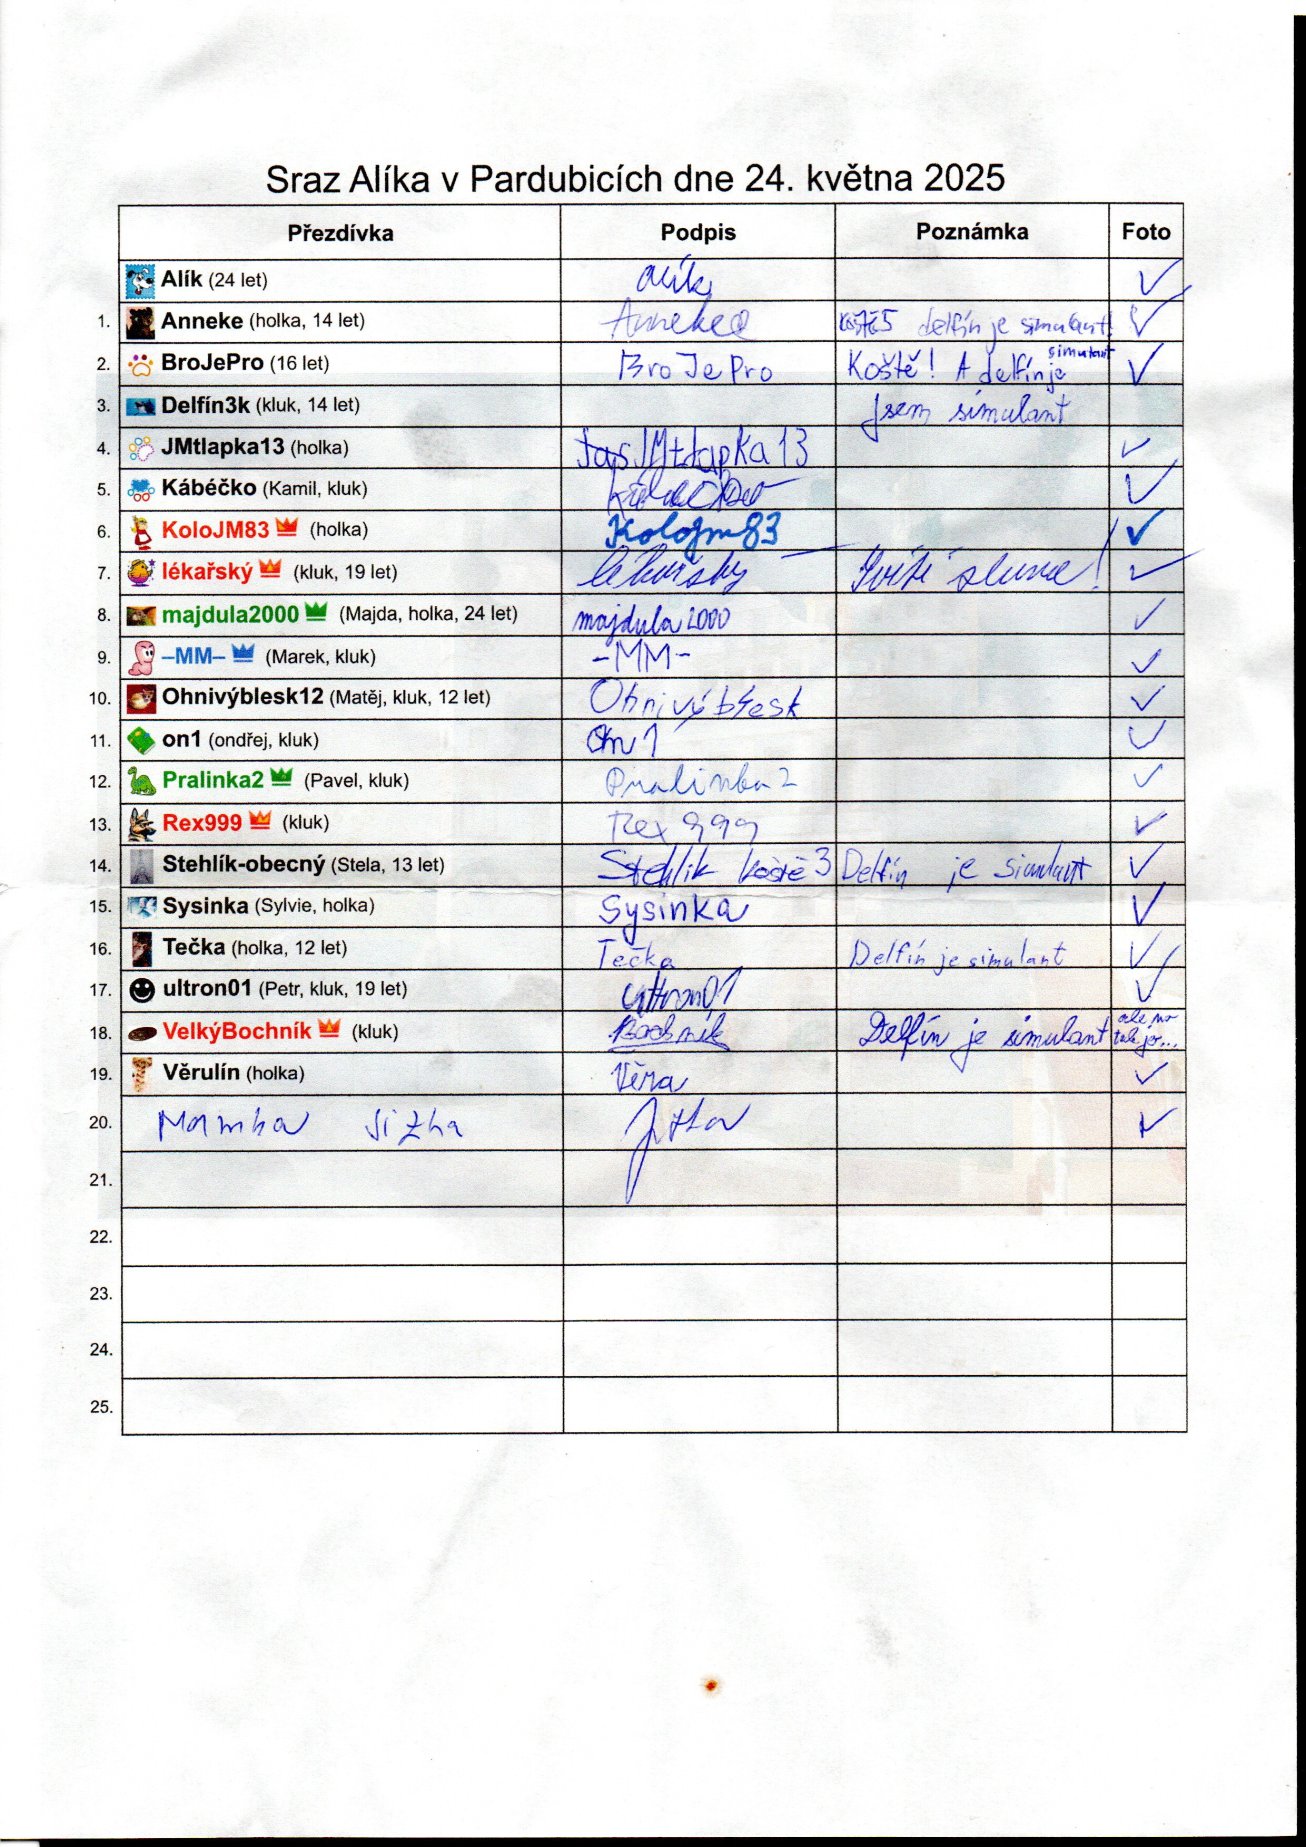 Sraz Alíka v Pardubicích dne 24. května 2025
Přezdívka Podpis Poznámka Foto
Alík (24 let) Alík
1. Anneke (holka, 14 let) Anneke delfín je simulant!
2. BroJePro (16 let) BroJePro Koště! A delfín je simulant
3. Delfín3k (kluk, 14 let) Jsem simulant
4. JMtlapka13 (holka) JMtlapka13
5. Kábéčko (Kamil, kluk) Kábéčko
6. KoloJM83 (holka) KoloJM83
7. lékařský (kluk, 19 let) lékařský Svítí slunce!
8. majdula2000 (Majda, holka, 24 let) majdula2000
9. –MM– (Marek, kluk) -MM-
10. Ohnivýblesk12 (Matěj, kluk, 12 let) Ohnivýblesk
11. on1 (ondřej, kluk) On1
12. Pralinka2 (Pavel, kluk) Pralinka2
13. Rex999 (kluk) Rex 999
14. Stehlík-obecný (Stela, 13 let) Stehlík koště 3 Delfín je simulant
15. Sysinka (Sylvie, holka) Sysinka
16. Tečka (holka, 12 let) Tečka Delfín je simulant
17. ultron01 (Petr, kluk, 19 let) ultron01
18. VelkýBochník (kluk) Bochník Delfín je simulant ale no tak jo...
19. Věrulín (holka) Věra
20. Mamka Jitka
21.
22.
23.
24.
25.